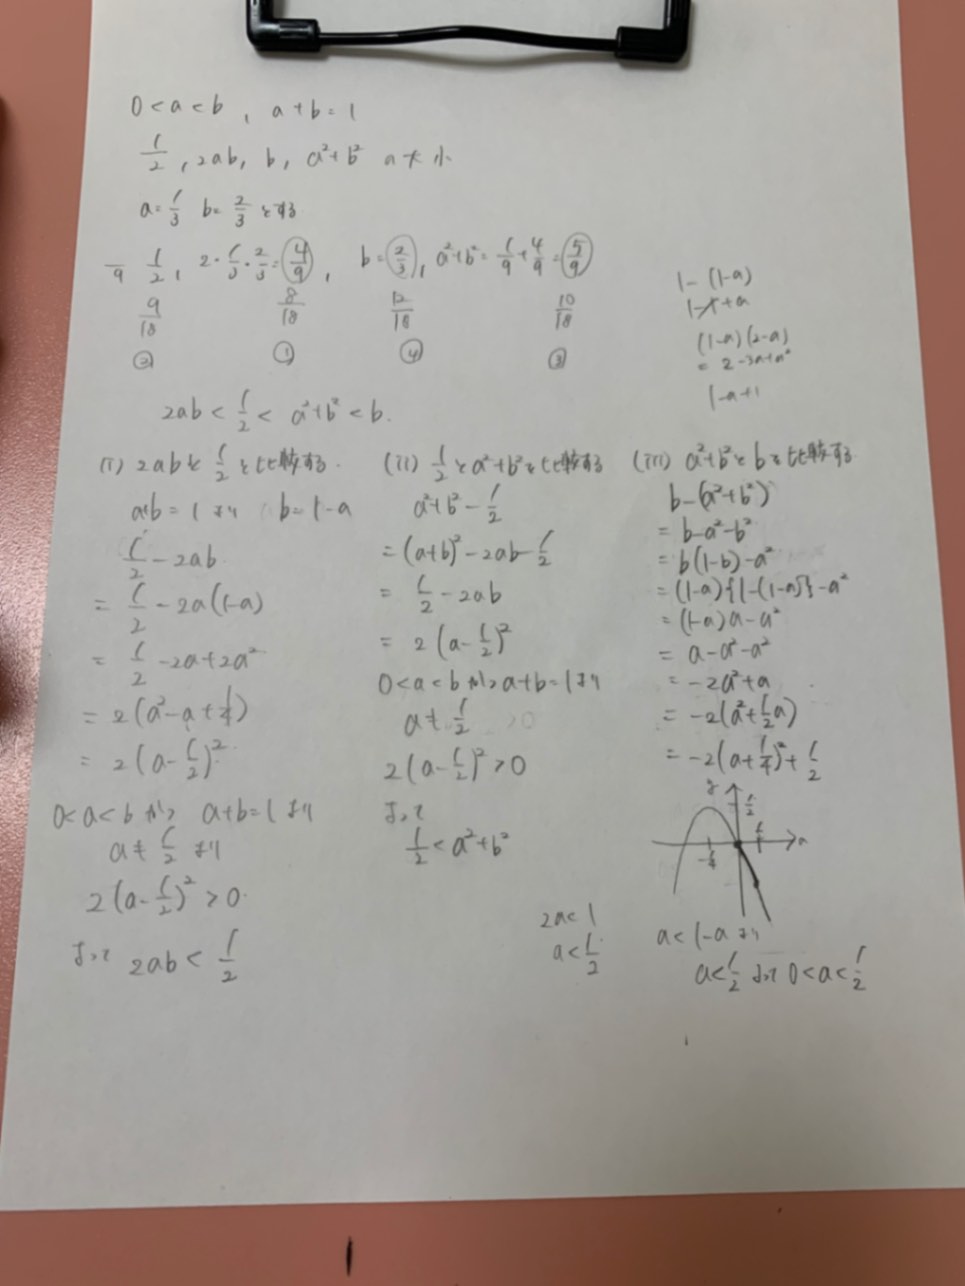 0<a<b, a+b=1
1/2, 2ab, b, a²+b² の大小
a=1/3 b=2/3とする
9 1/2, 2・1/3・2/3=4/9, b=2/3, a²+b²=1/9+4/9=5/9
9/18 8/18 12/18 10/18
② ① ④ ③
2ab<1/2<a²+b²<b.
1-(1-a)
1-1+a
(1-a)(2-a)
=2-3a+a²
1-a+1
(i) 2abと1/2を比較する.
a+b=1より b=1-a
1/2-2ab
=1/2-2a(1-a)
=1/2-2a+2a²
=2(a²-a+1/4)
=2(a-1/2)²
0<a<bかつ a+b=1より
a≠1/2より
2(a-1/2)²>0
よって 2ab<1/2
(ii) 1/2とa²+b²を比較する
a²+b²-1/2
=(a+b)²-2ab-1/2
=1/2-2ab
=2(a-1/2)²
0<a<bかつa+b=1より
a≠1/2
2(a-1/2)²>0
よって
1/2<a²+b²
2a<1
a<1/2
(iii) a²+b²とbを比較する
b-(a²+b²)
=b-a²-b²
=b(1-b)-a²
=(1-a){1-(1-a)}-a²
=(1-a)a-a²
=a-a²-a²
=-2a²+a
=-2(a²+1/2a)
=-2(a+1/4)²+1/2
y
1/2
1/2
a
-1/4
a<1-aより
a<1/2 よって 0<a<1/2